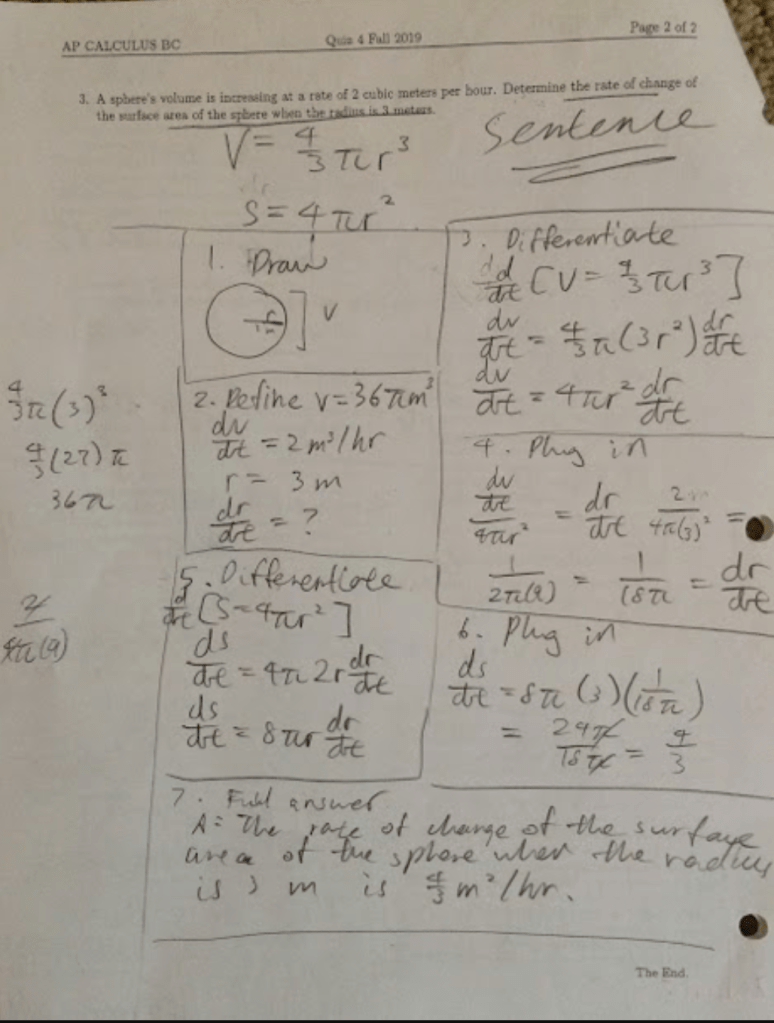 AP CALCULUS BC Quiz 4 Fall 2019 Page 2 of 2
3. A sphere's volume is increasing at a rate of 2 cubic meters per hour. Determine the rate of change of
the surface area of the sphere when the radius is 3 meters.
Sentence
V = 4/3 πr³
S = 4πr²
1. Draw
r
V
4/3 π(3)³
4/3 (27) π
36π
2. Define V = 36πm³
dv/dt = 2 m³/hr
r = 3 m
dr/dt = ?
3. Differentiate
d/dt [V = 4/3 πr³]
dv/dt = 4/3 π(3r²) dr/dt
dv/dt = 4πr² dr/dt
4. Plug in
dv/dt / 4πr² = dr/dt 2/4π(3)² =
1/2π(9) = 1/18π = dr/dt
2/4π(9)
5. Differentiate
d/dt [S = 4πr²]
ds/dt = 4π 2r dr/dt
ds/dt = 8πr dr/dt
6. Plug in
ds/dt = 8π (3)(1/18π)
= 24π/18π = 4/3
7. Full answer
A: The rate of change of the surface
area of the sphere when the radius
is 3 m is 4/3 m²/hr.
The End.